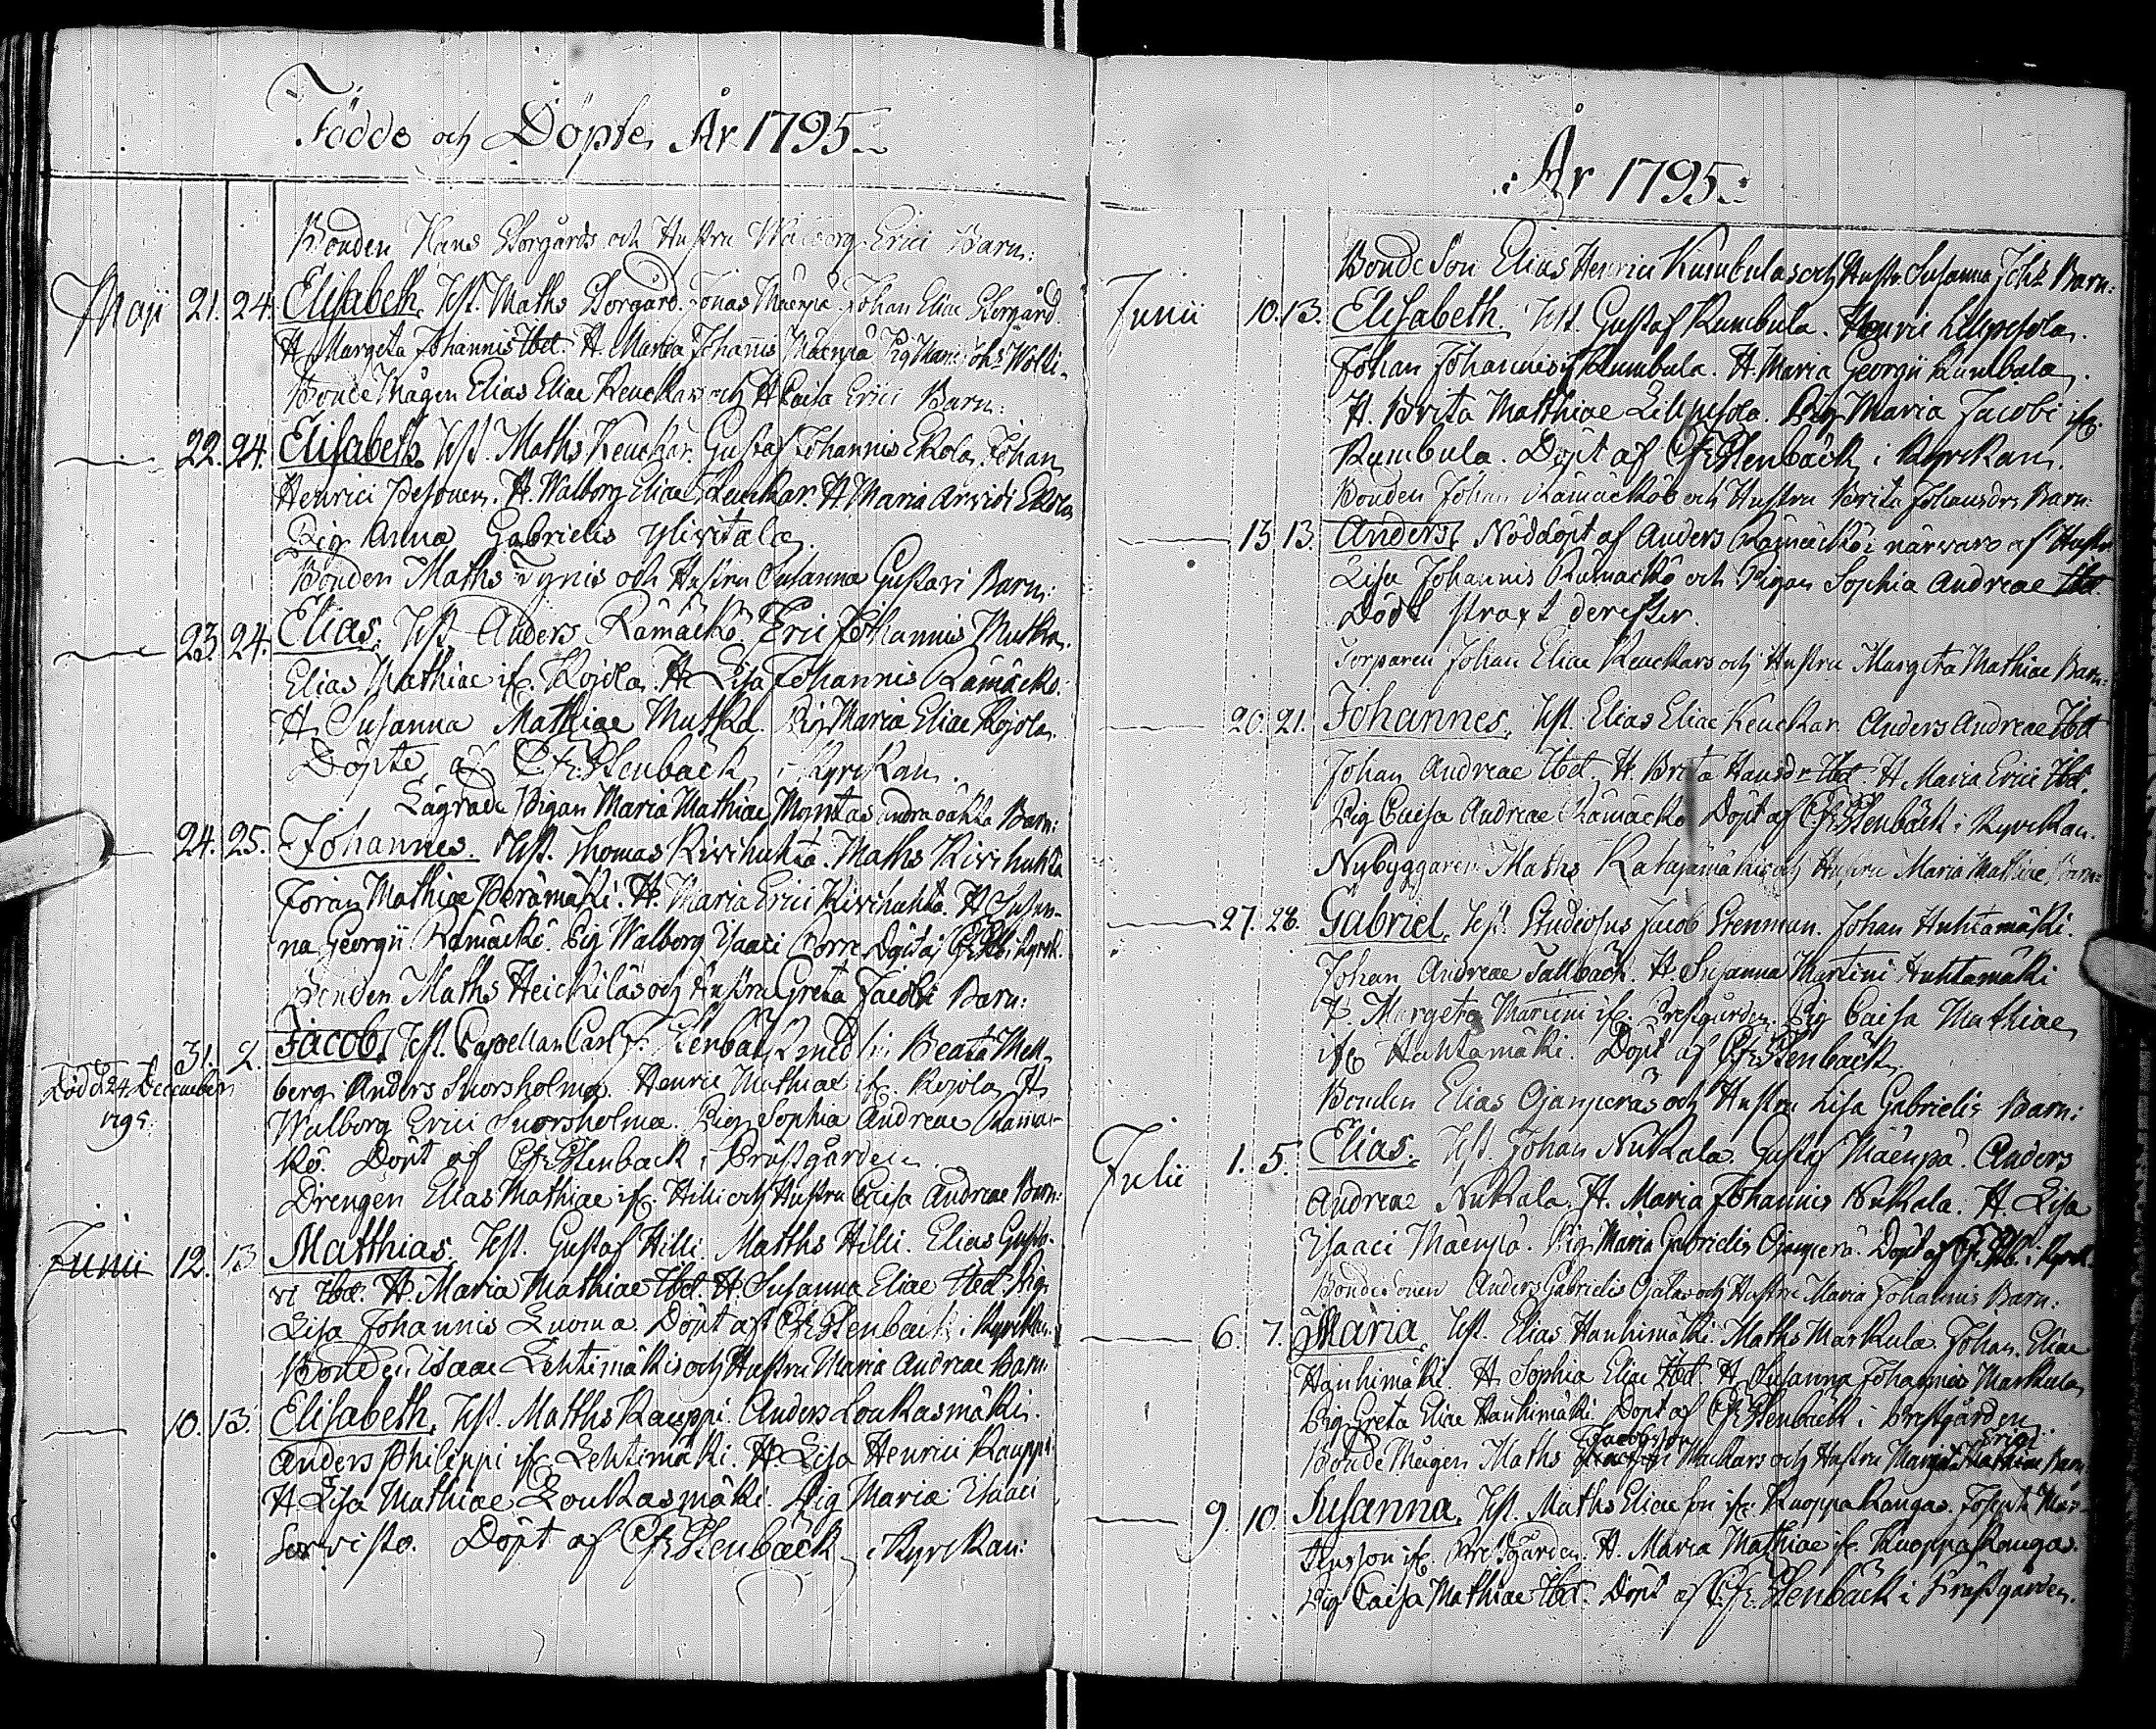 Födde och Döpte År 1795
Bonden Hans Storgårds och Hustru Walborg Erici Barn:
Maji 21. 24. Elisabeth. Test. Maths Storgård. Jonas Mäenpä. Johan Eliae Storgård.
H. Margeta Johannis Ibd. H. Maria Johannis Mäenpä Pig. Maria Joh:s Wolti
Bonde Mågen Elias Eliae Keuckars och H. Caisa Erici Barn:
22. 24. Elisabeth. Test. Maths Keuckar. Gustaf Johannis Ekola. Johan
Henrici Pesonen. H. Walborg Eliae Keuckar. H. Maria Arvidi Ekola
Pig. Anna Gabrielis Ylivitala.
Bonden Maths Tynis och Hustru Susanna Gustavi Barn:
23. 24. Elias. Test. Anders Rämäckö. Eric Johannis Mutka.
Elias Mathiae if. Kojola. H. Lisa Johannis Rämäckö.
H. Susanna Mathiae Mutka. Pig. Maria Eliae Kojola.
Döpte af C. Fr. Stenbäck, i Kyrckan.
Lägrade Pigan Maria Mathiae andra oäkta Barn:
24. 25. Johannes. Test. Thomas Kivihuhta. Maths Kivihuhta
Jöran Mathiae Perämäki. H. Maria Erici Kivihuhta. H. Susan-
na Georgii Rämäckö. Pig. Walborg Isaaci Porre. Döpt af C. Fr. Stb. i Kyrck.
Bonden Maths Heickiläs och Hustru Greta Jacobi Barn:
31. 2. Jacob. Test. Capellan Carl F. Stenbäck med Beata Mell
Död d. 24 December
1795.
berg. Anders Snorsholma. Henric Mathiae if. Kojola. H.
Walborg Erici Snorsholma. Pig. Sophia Andreae Rämä-
kö. Döpt af C. Fr. Stenbäck i Prästgården.
Drengen Elias Mathiae if. Hilli och Hustru Caisa Andreae Barn:
Junii 12. 13. Matthias. Test. Gustaf Hilli. Matths Hilli. Elias Gusta-
vi Ibd. H. Maria Mathiae Ibd. H. Susanna Eliae Ibd. Pig.
Lisa Johannis Luoma. Döpt af C. Fr. Stenbäck i Kyrckan.
Bonden Isaac Lehtimäkis och Hustru Maria Andreae Barn:
10. 13. Elisabeth. Test. Matths Kauppi. Anders Loukasmäki.
Anders Philippi if. Lehtimäki. H. Lisa Henrici Kauppi
H. Lisa Mathiae Loukasmäki. Pig. Maria Isaaci
Sorvisto. Döpt af C. Fr. Stenbäck, i Kyrckan:
År 1795
Bonde Son Elias Henrici Kumbulas och Hustr. Susanna Joh:s Barn:
Junii 10. 13. Elisabeth. Test. Gustaf Kumbula. Henric Lillpesola.
Johan Johannis if. Kumbula. H. Maria Georgii Kumbula.
H. Brita Matthiae Lillpesola. Pig. Maria Jacobi if.
Kumbula. Döpt af C. Fr. Stenbäck, i Kyrckan.
Bonden Johan Rämäckös och Hustru Brita Johansdr. Barn:
13 13. Anders. Nöddöpt af Anders Rämäckö i närvaro af Hustr.
Lisa Johannis Rämäckö och Pigan Sophia Andreae Ibd.
Dödt straxt derefter.
Torparen Johan Eliae Keuckars och Hustru Margeta Mathiae Barn:
20. 21. Johannes. Test. Elias Eliae Keuckar. Anders Andreae Ibd
Johan Andreae Ibd. H. Brita Hansdr. Ibd. H. Maria Erici Ibd.
Pig Caisa Andreae Rämäckö Döpt af C. Fr. Stenbäck i Kyrckan.
Nybyggaren Maths Katajamäkis och Hustru Maria Mathiae Barn:
27. 28. Gabriel. Test. Studiosus Jacob Stenman. Johan Huhtamäki.
Johan Andreae Tallbäck. H. Susanna Martini Huhtamäki
H. Margeta Martini if. Prestgården. Pig. Caisa Mathiae
if. Huhtamäki. Döpt af C. Fr. Stenbäck.
Bonden Elias Ojanperäs och Hustru Lisa Gabrielis Barn:
Julii 1. 5. Elias. Test. Johan Nukala. Gustaf Mäenpä. Anders
Andreae Nukala. H. Maria Johannis Nukala. H. Lisa
Isaaci Mäenpä. Pig. Maria Gabrielis Ojanperä. Döpt af C. Fr. Stb. i Kyrck.
Bondesonen Anders Gabrielis Ojalas och Hustru Maria Johannis Barn:
6. 7. Maria. Test. Elias Hanhimäki. Maths Markula. Johan Eliae
Hanhimäki. H. Sophia Eliae Ibd. H. Susanna Johannis Markula
Pig. Greta Eliae Hanhimäki. Döpt af C. Fr. Stenbäck i Prestgården
Jacobsson Erici
Bonde Mågen Maths Mackars och Hustru Maria Mathiae Barn
9. 10. Susanna. Test. Maths Eliae son if. Kuoppakangas. Joseph Mår-
tensson if. Prestgården. H. Maria Mathiae if. Kuoppakanga.
Pig. Caisa Mathiae Ibd. Döpt af C. Fr. Stenbäck i Prästgården.